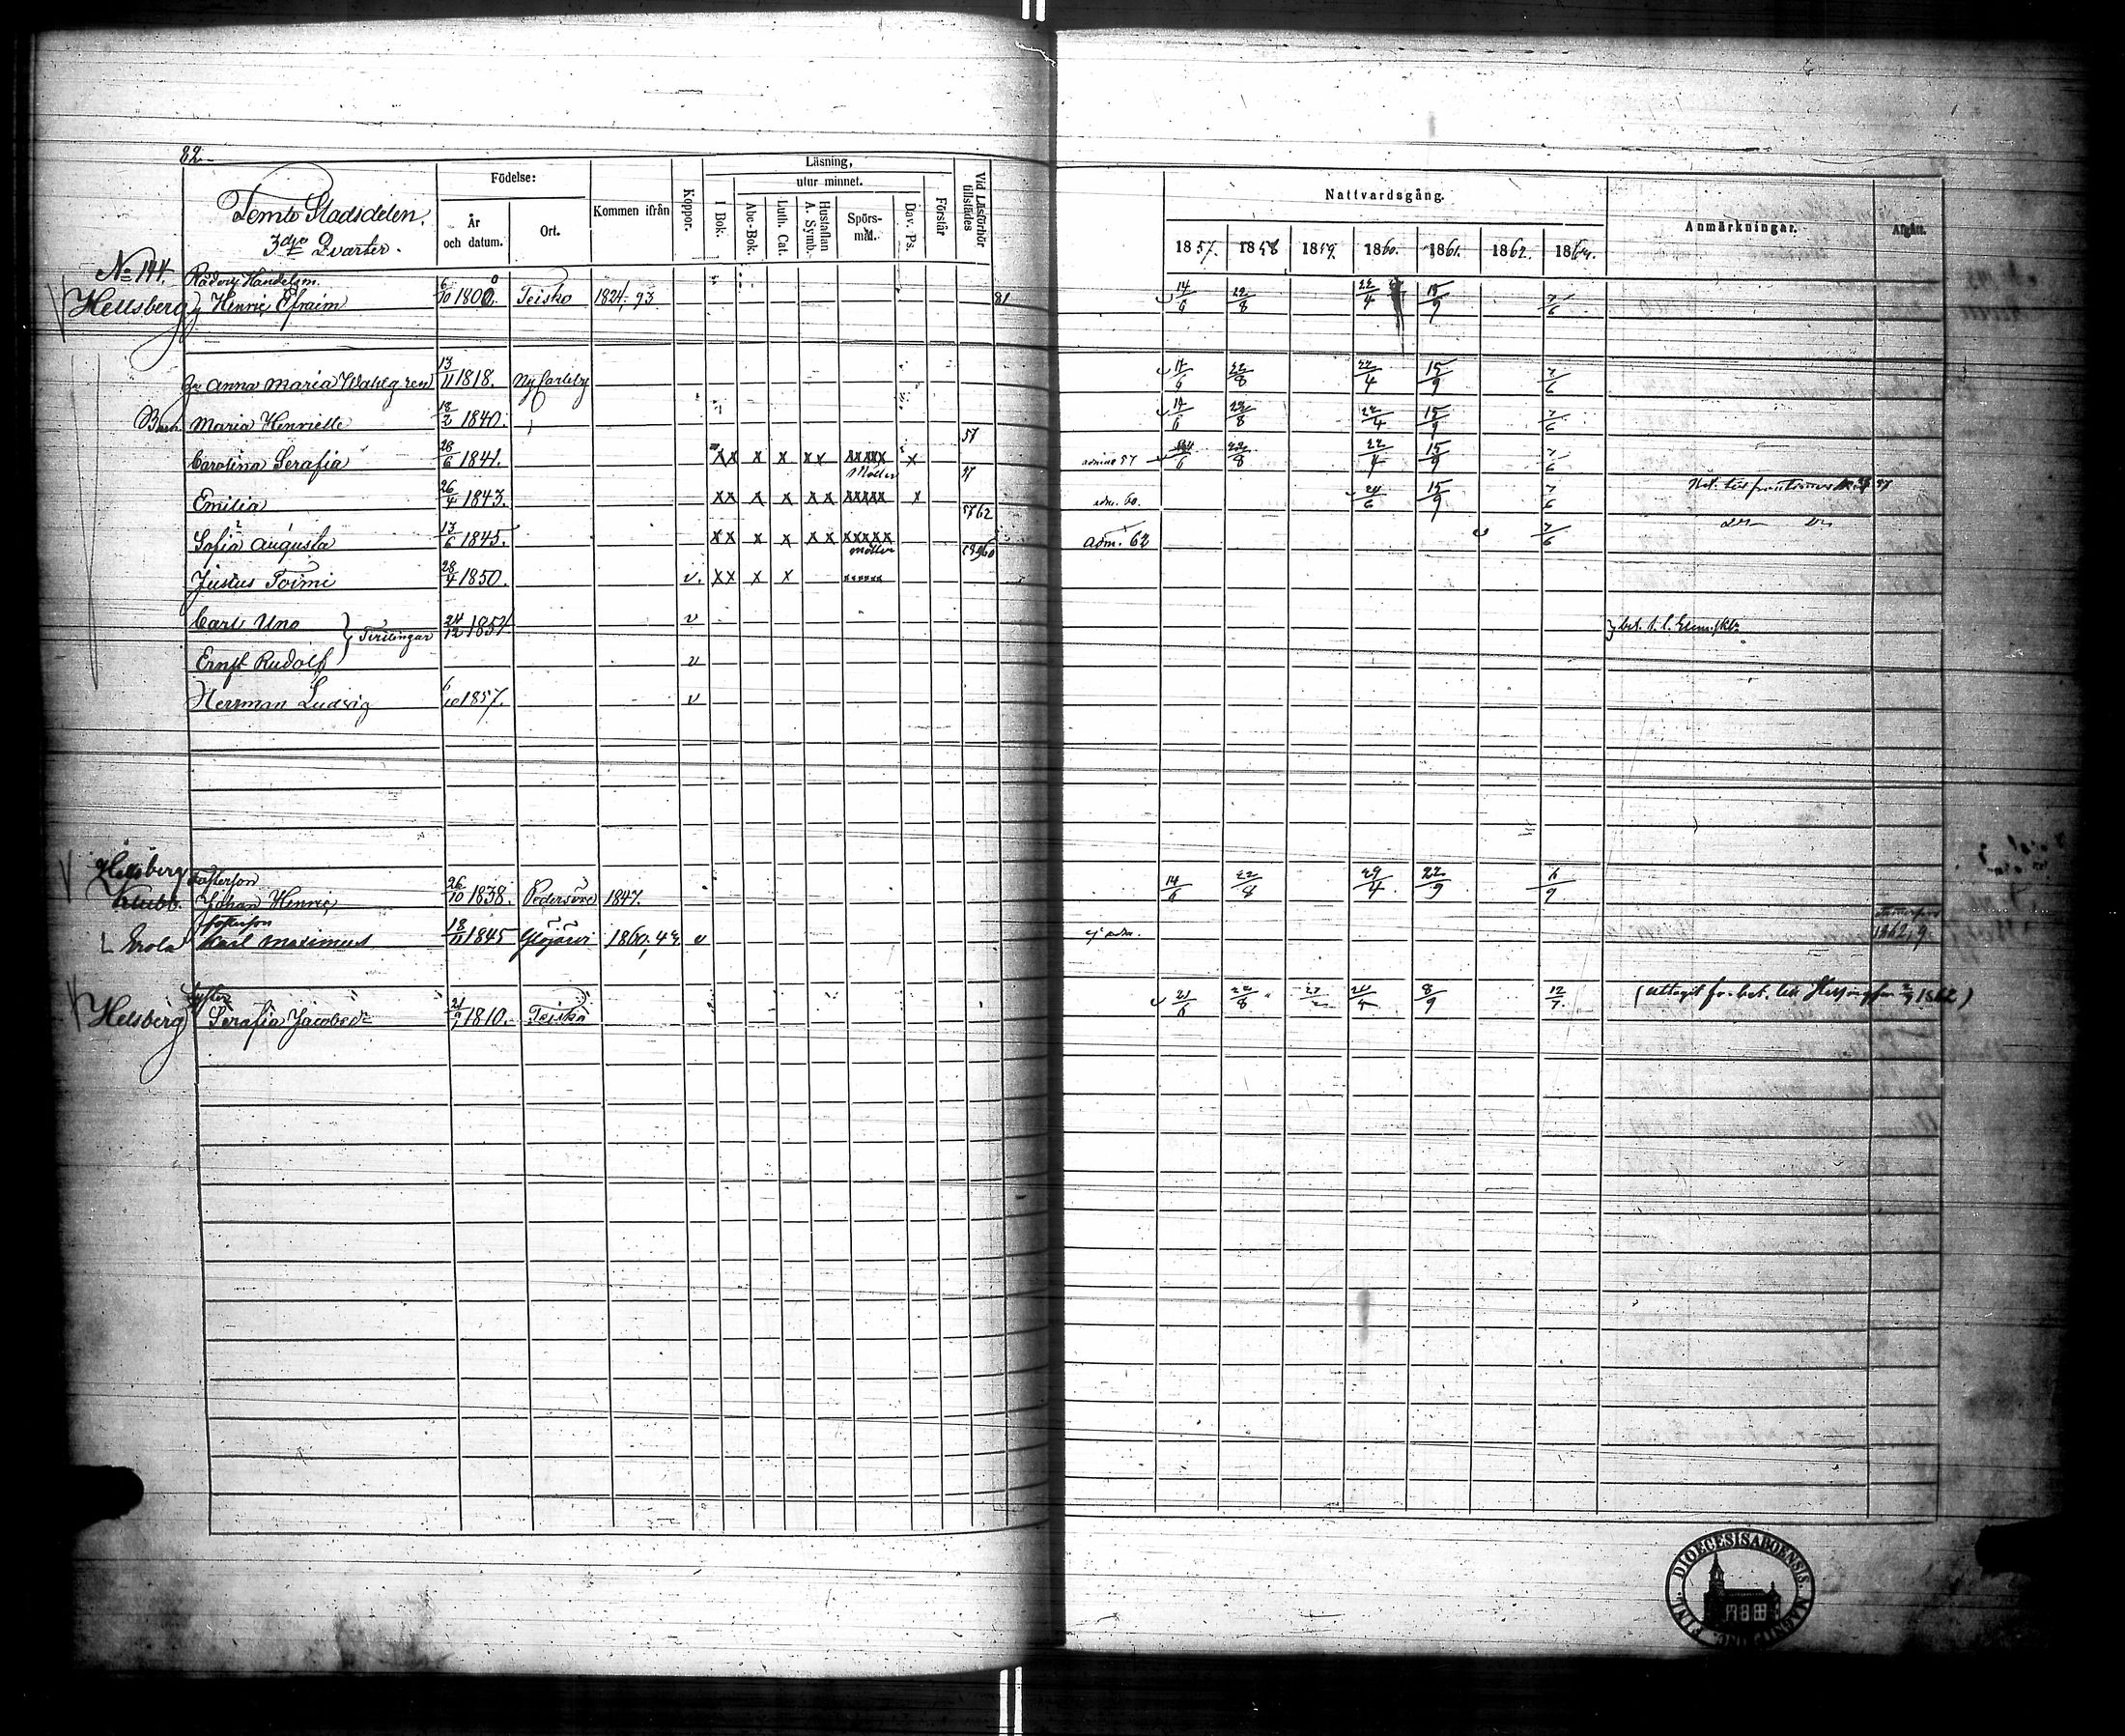 82.
Femte Stadsdelen.
3dje Qvarter.
Födelse:
År
och datum.
Ort.
Kommen ifrån
Koppor.
Läsning,
utur minnet.
I Bok.
Abc-Bok.
Luth. Cat.
Hustaflan
A. Symb.
Spörs-
mål.
Dav. Ps.
Förstår
Vid Läsförhör
tillstädes
Nattvardsgång.
1857. 1858 1859. 1860. 1861. 1862. 1864.
Anmärkningar.
Afgått.
No 144.
Handelsm.
Hellsberg, Henric Efraim 6/10 1800. Teisko 1824, 93 81 14/6 22/8 22/4 15/9 7/6
Anna Maria Wahlgren 13/11 1818. Ny Carleby 14/6 22/8 22/4 15/9 7/6
Barn Maria Henriette 18/2 1840. 14/6 22/8 22/4 15/9 7/6
57
Carolina Serafia 28/6 1841. xx x x xx xxxxx x 57 22/8 22/4 15/9 7/6
Emilia 26/4 1843. xx x x xx xxxxx x adm. 60. 24/6 15/9 7/6
57 62
Sofia Augusta 13/6 1845. xx x x xx xxxxx adm. 62 7/6
Justus Toimi 28/4 1850. v. xx x x
Carl Uno 24/12 1854 v
Ernst Rudolf v
Herrman Ludvig 6/10 1857. v
Helsberg
fosterson
Johan Henric 26/10 1838. Pedersöre 1847. 14/6 22/8 29/4 22/9 6/9
fosterson
Karl Maximus 18/11 1845 Ylöjärvi 1860, 42 v ej adm. 1862, 9.
Syster
Helsberg Serafia Jacobsdr 21/9 1810. Teisko 21/6 22/8 8/9 12/7. (uttagit fr. bet. till Helsingfors 1862)
DIOECESIS ABOENSIS. MAGNI DUC. FINL.